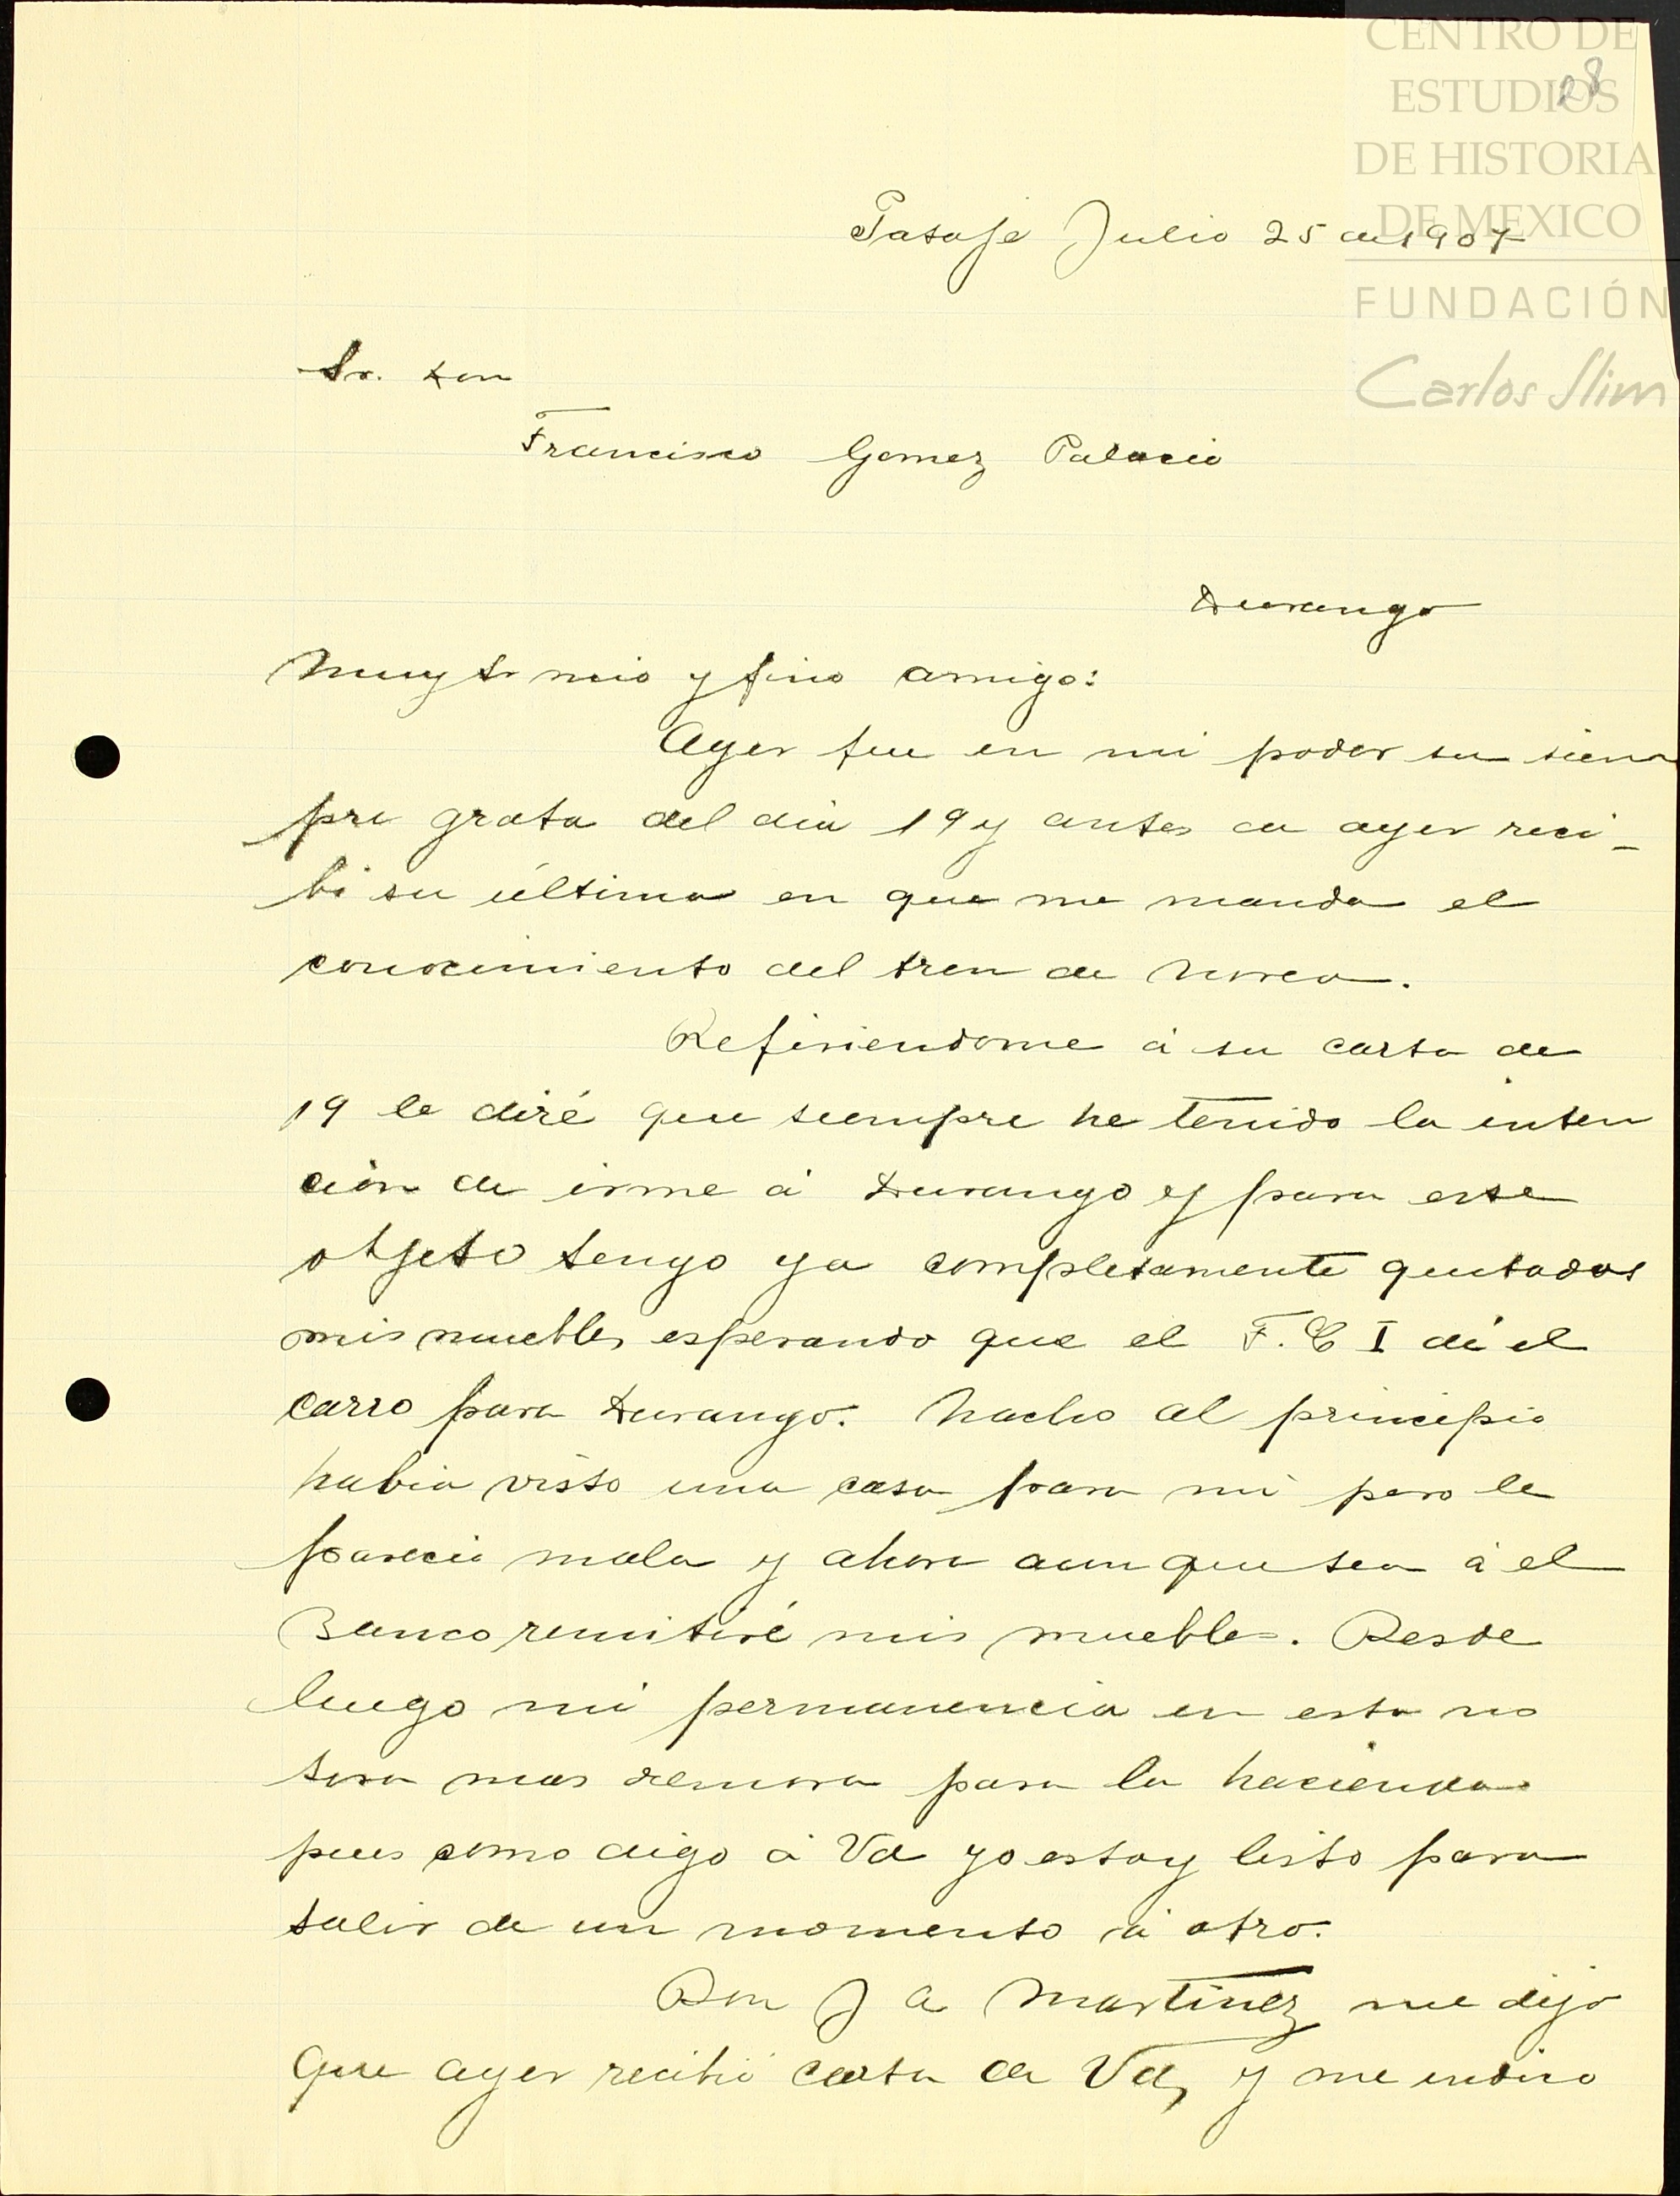 CENTRO DE
ESTUDIOS
DE HISTORIA
DE MEXICO
FUNDACIÓN
Carlos Slim
28
Pasaje Julio 25 de 1907
Sr. Don
Francisco Gomez Palacio
Durango
Muy Sr mio y fino amigo:
Ayer fue en mi poder su siem
pre grata del dia 19 y antes de ayer reci-
bi su última en que me manda el
conocimiento del tren de
Refiriendome á su carta de
19 le diré que siempre he tenido la inten
ción de irme á Durango y para ese
objeto tengo ya completamente
mis muebles esperando que el F. C I dé el
carro para Durango. Nacho al principio
habia visto una casa para mi pero le
pareció mala y ahora aunque sea á el
Banco remitiré mis muebles. Desde
luego mi permanencia en esta no
sera mas demora para la hacienda
pues como digo á Vd yo estoy listo para
salir de un momento á otro.
Don J A Martinez me dijo
que ayer recibió carta de Vd, y me indico